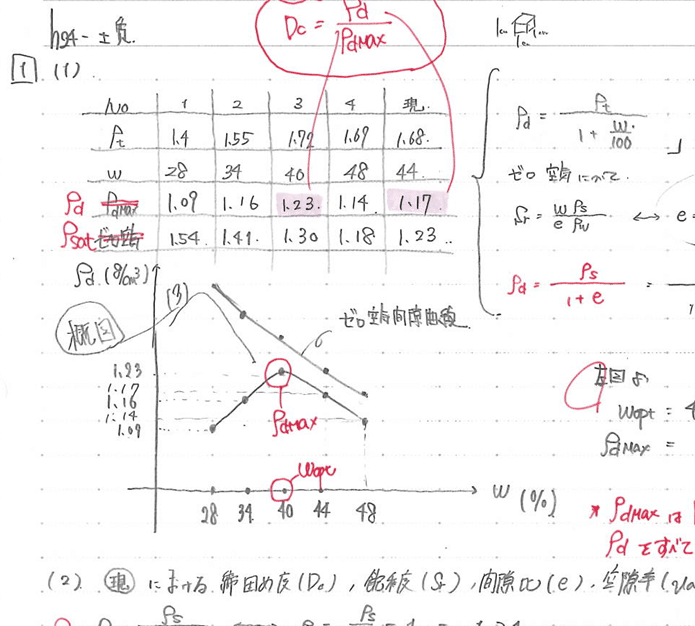 h24-土質
Dc = ρd / ρdmax
1cm 1cm 1cm
1 (1)
No 1 2 3 4 現.
ρt 1.4 1.55 1.72 1.69 1.68.
w 28 34 40 48 44.
ρd ρdmax 1.09 1.16 1.23. 1.14. 1.17
ρsat ゼロ空隙 1.54. 1.41. 1.30 1.18. 1.23..
ρd = ρt / 1 + w/100
ゼロ空隙にて.
Sr = w ρs / e ρw ⟷ e =
ρd = ρs / 1 + e =
ρd (g/cm3)
(3)
ゼロ空気間隙曲線
概図
1.23
1.17
1.16
1.14
1.09
ρdmax
左図より
wopt = 4
ρdmax =
wopt
28 34 40 44 48
w (%)
* ρdmax は
ρdをすべて
(2) 現 における 締固め度(Dc), 飽和度(Sr), 間隙比(e), 空隙率(va
ρs ρs